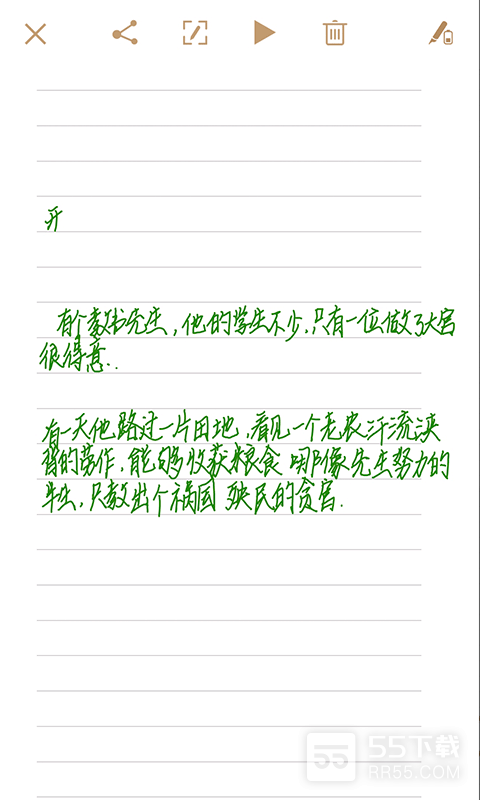 开
有个教书先生,他的学生不少.只有一位做了大官
很得意..
有一天他路过一片田地,看见一个老农汗流浃
背的劳作,能够收获粮食 哪像先生努力的
半生,只教出个祸国 殃民的贪官.
55下载
RR55.COM